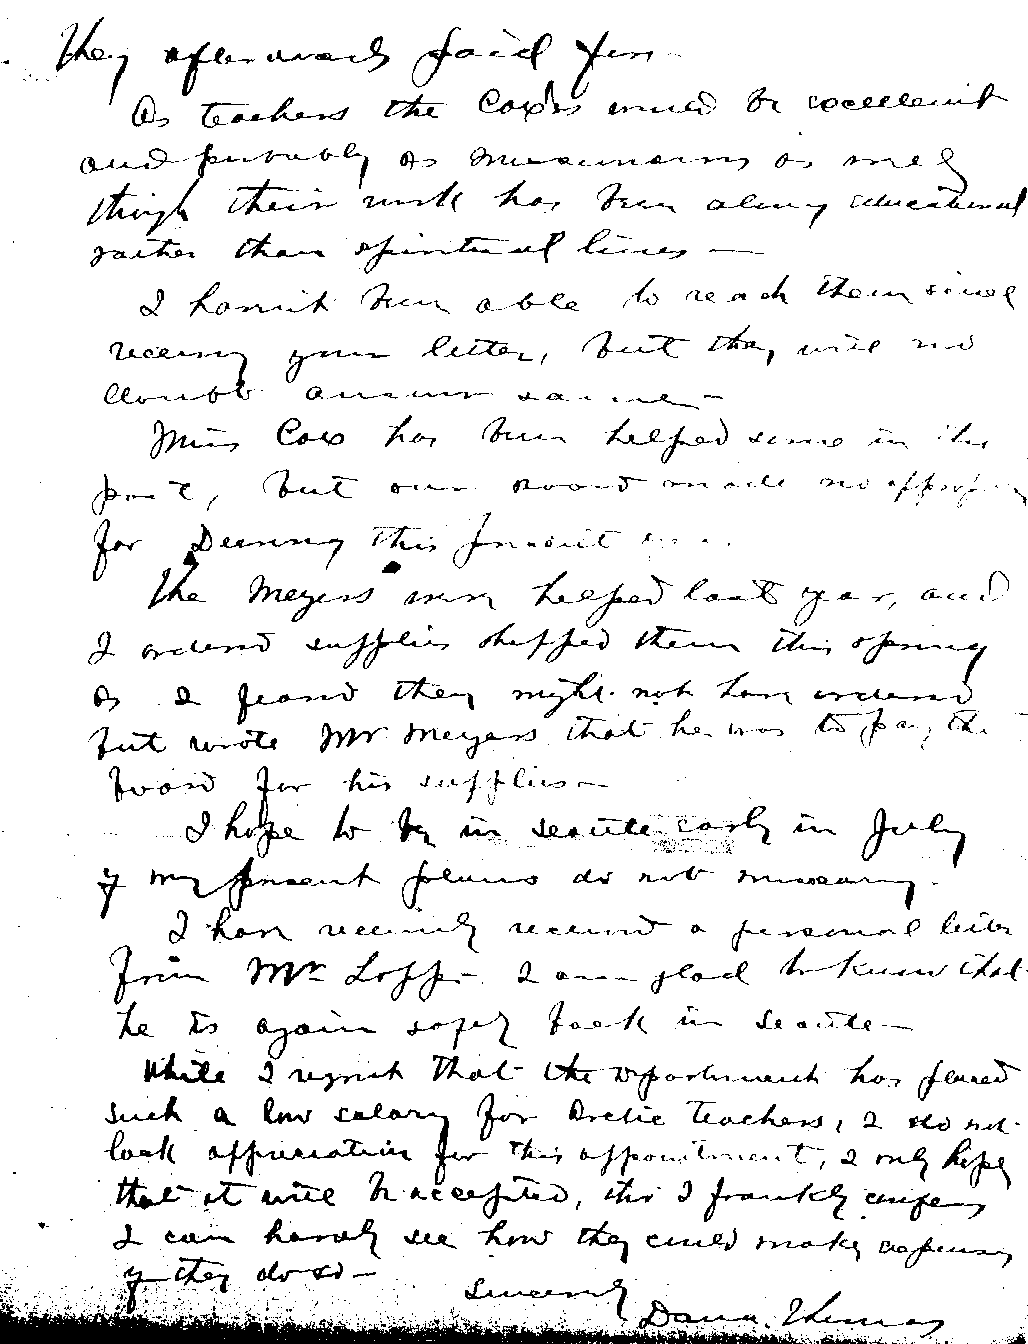 They afterwards paid for
As teachers the Cox's would be excellent
and probably as missionaries as well
though their work has been along educational
rather than spiritual lines —
I havent been able to reach them since
receiving your letter, but they will no
doubt answer same —
Miss Cox has been helped some in the
past, but our Board made no
for Deering this present
The Meyers were helped last year, and
I ordered supplies shipped them this spring
as I feared they might not have ordered
but wrote Mr Meyers that he was to pay the
board for his supplies —
I hope to be in Seattle early in July
if my present plans do not miscarry.
I have recently received a personal letter
from Mr Lopp - I am glad to know that
he is again safely back in Seattle —
While I regret that the department has placed
such a low salary for Arctic teachers, I do not
lack appreciation for this appointment, I only hope
that it will be accepted, tho I frankly confess
I can hardly see how they could make expenses
if they do so —
Sincerely
Dana Thomas